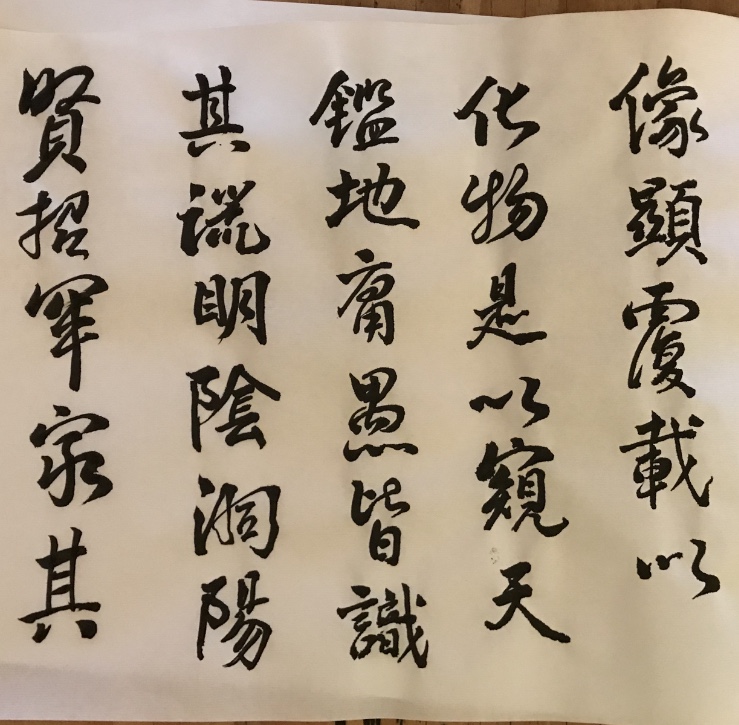 像顯覆載以
化物是以窺天
鑑地庸愚皆識
其端明陰洞陽
賢哲罕窮其